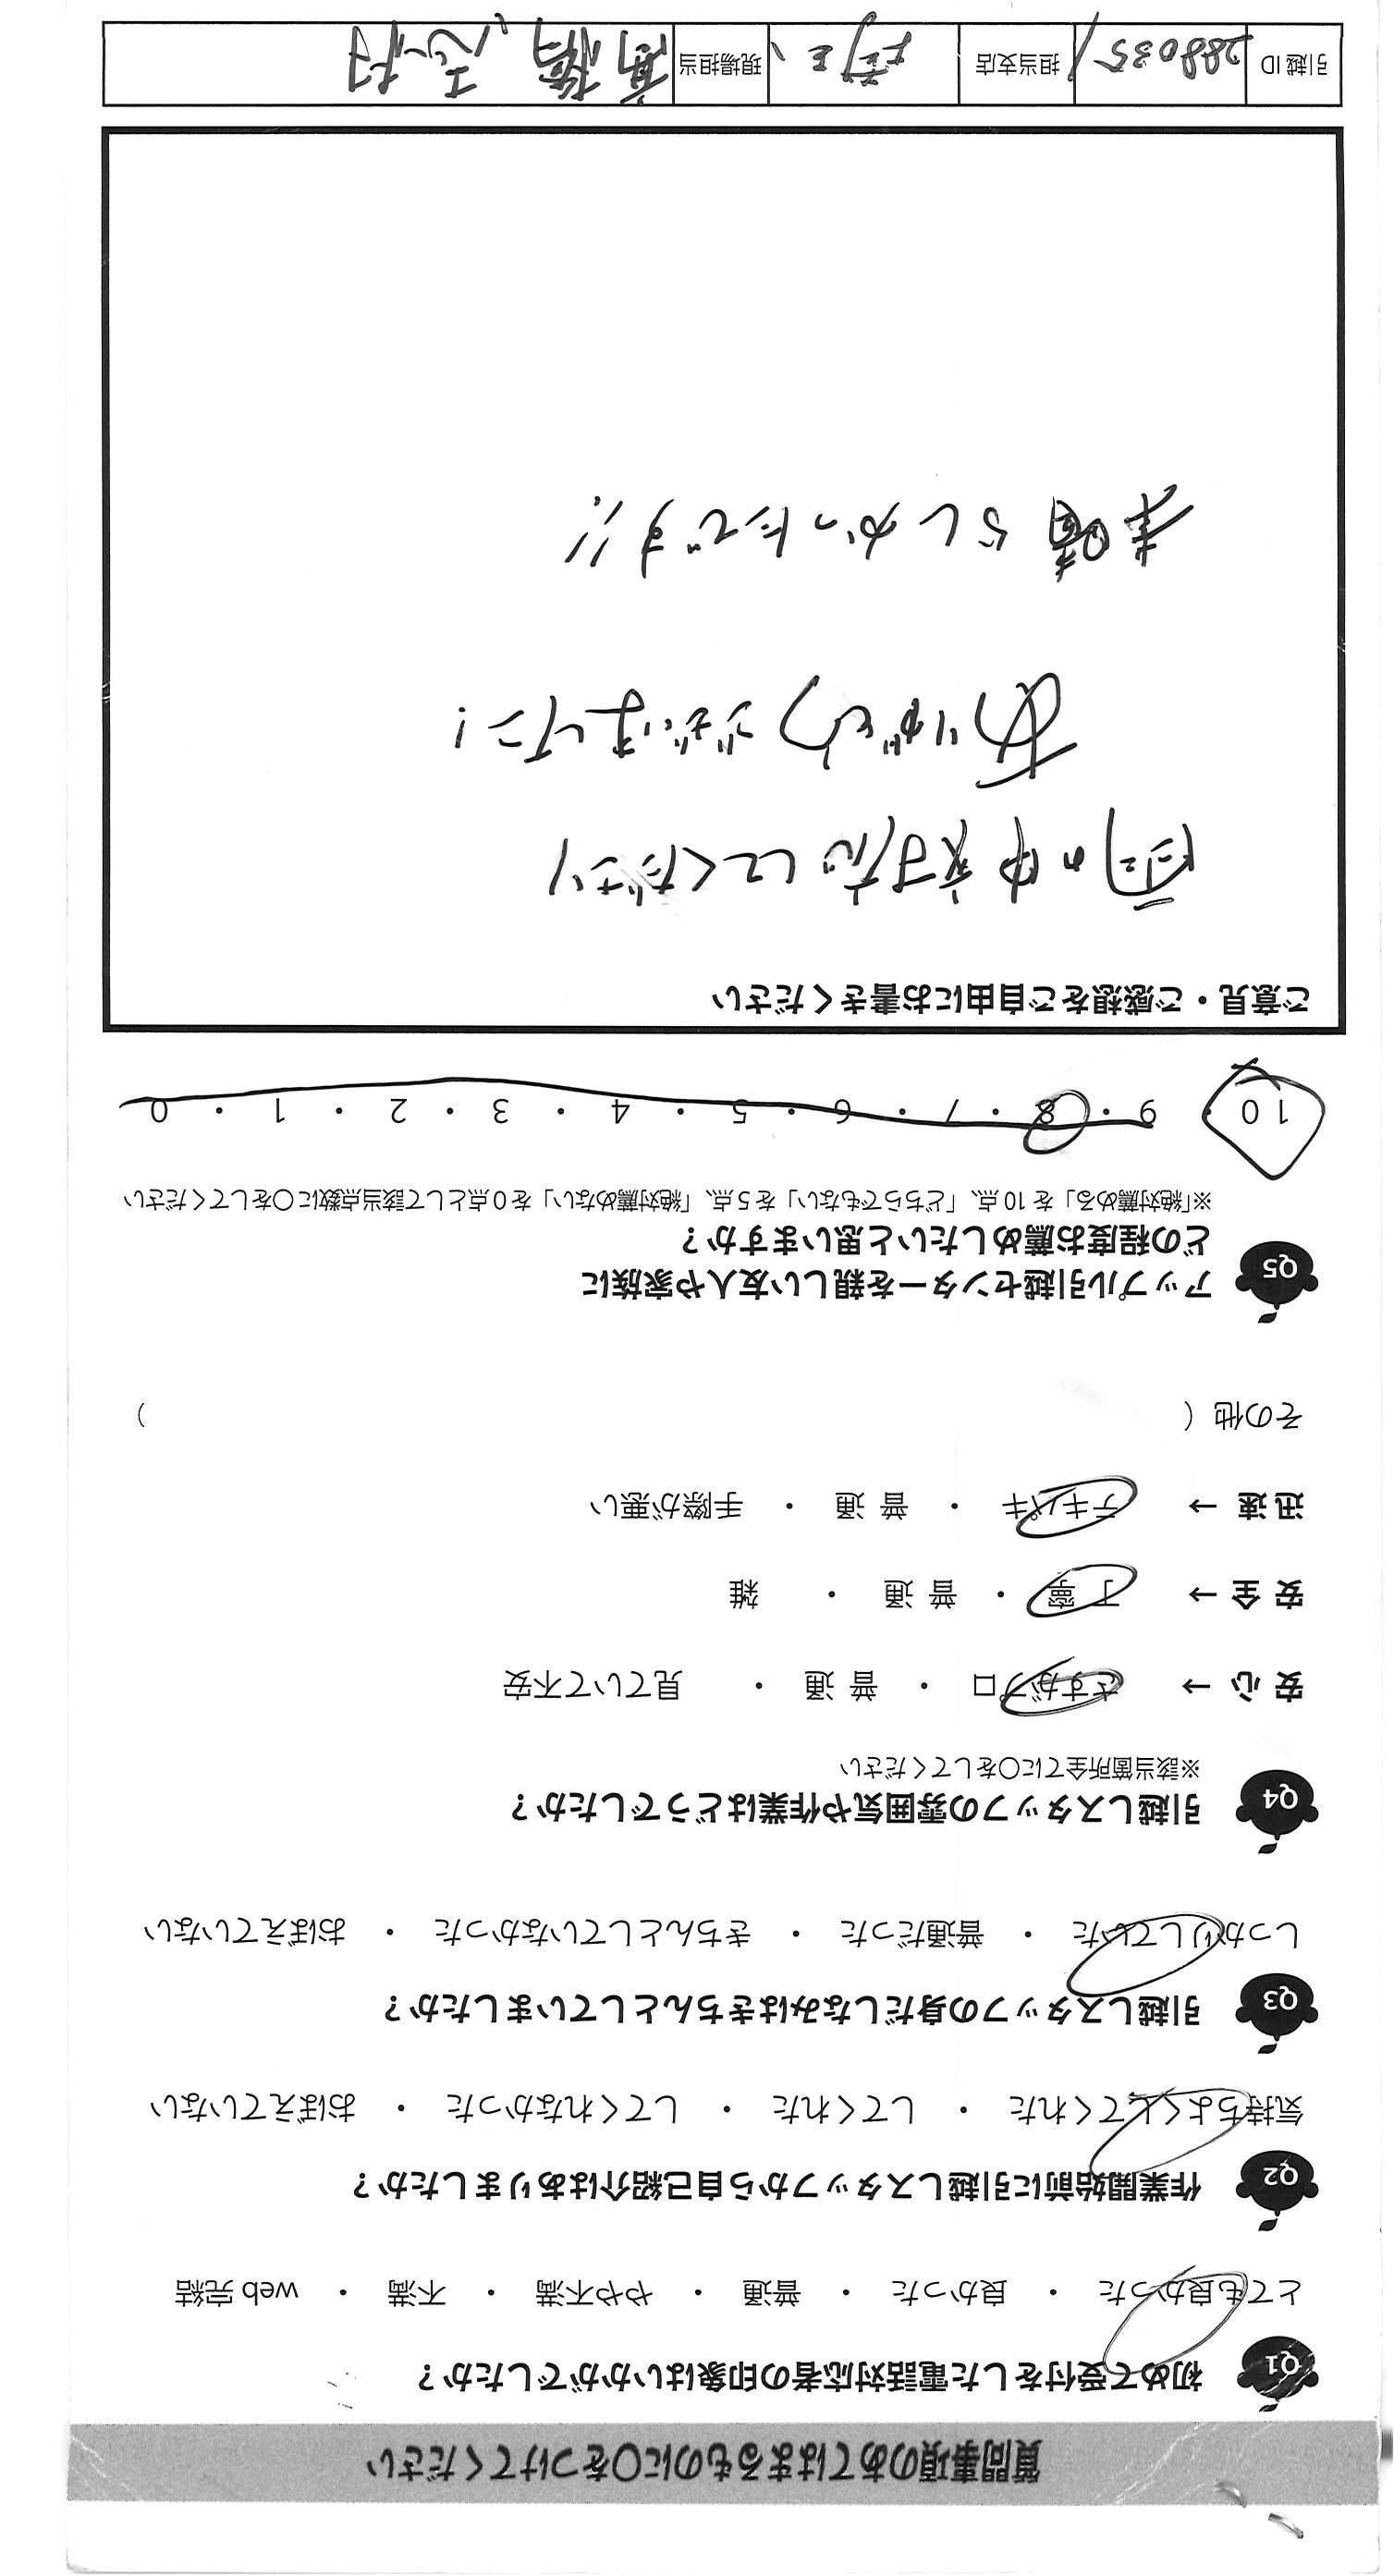 質問事項のあてはまるものに〇をつけてください
Q1 初めて受付をした電話対応者の印象はいかがでしたか？
とても良かった ・ 良かった ・ 普通 ・ やや不満 ・ 不満 ・ web 完結
Q2 作業開始前に引越しスタッフから自己紹介はありましたか？
気持ちよくしてくれた ・ してくれた ・ してくれなかった ・ おぼえていない
Q3 引越しスタッフの身だしなみはきちんとしていましたか？
しっかりしていた ・ 普通だった ・ きちんとしていなかった ・ おぼえていない
Q4 引越しスタッフの雰囲気や作業はどうでしたか？
※該当箇所全てに〇をしてください
安 心 → さすがプロ ・ 普 通 ・ 見ていて不安
安 全 → 丁 寧 ・ 普 通 ・ 雑
迅 速 → テキパキ ・ 普 通 ・ 手際が悪い
その他（ ）
Q5 アップル引越センターを親しい友人や家族に
どの程度お薦めしたいと思いますか？
※「絶対薦める」を 10 点、「どちらでもない」を 5 点、「絶対薦めない」を 0 点として該当点数に〇をしてください
10 ・ 9 ・ 8 ・ 7 ・ 6 ・ 5 ・ 4 ・ 3 ・ 2 ・ 1 ・ 0
ご意見・ご感想をご自由にお書きください
雨の中対応してくださり
ありがとうございました！
素晴らしかったです!!
引越 ID 288035 担当支店 埼玉 現場担当 髙橋、志村